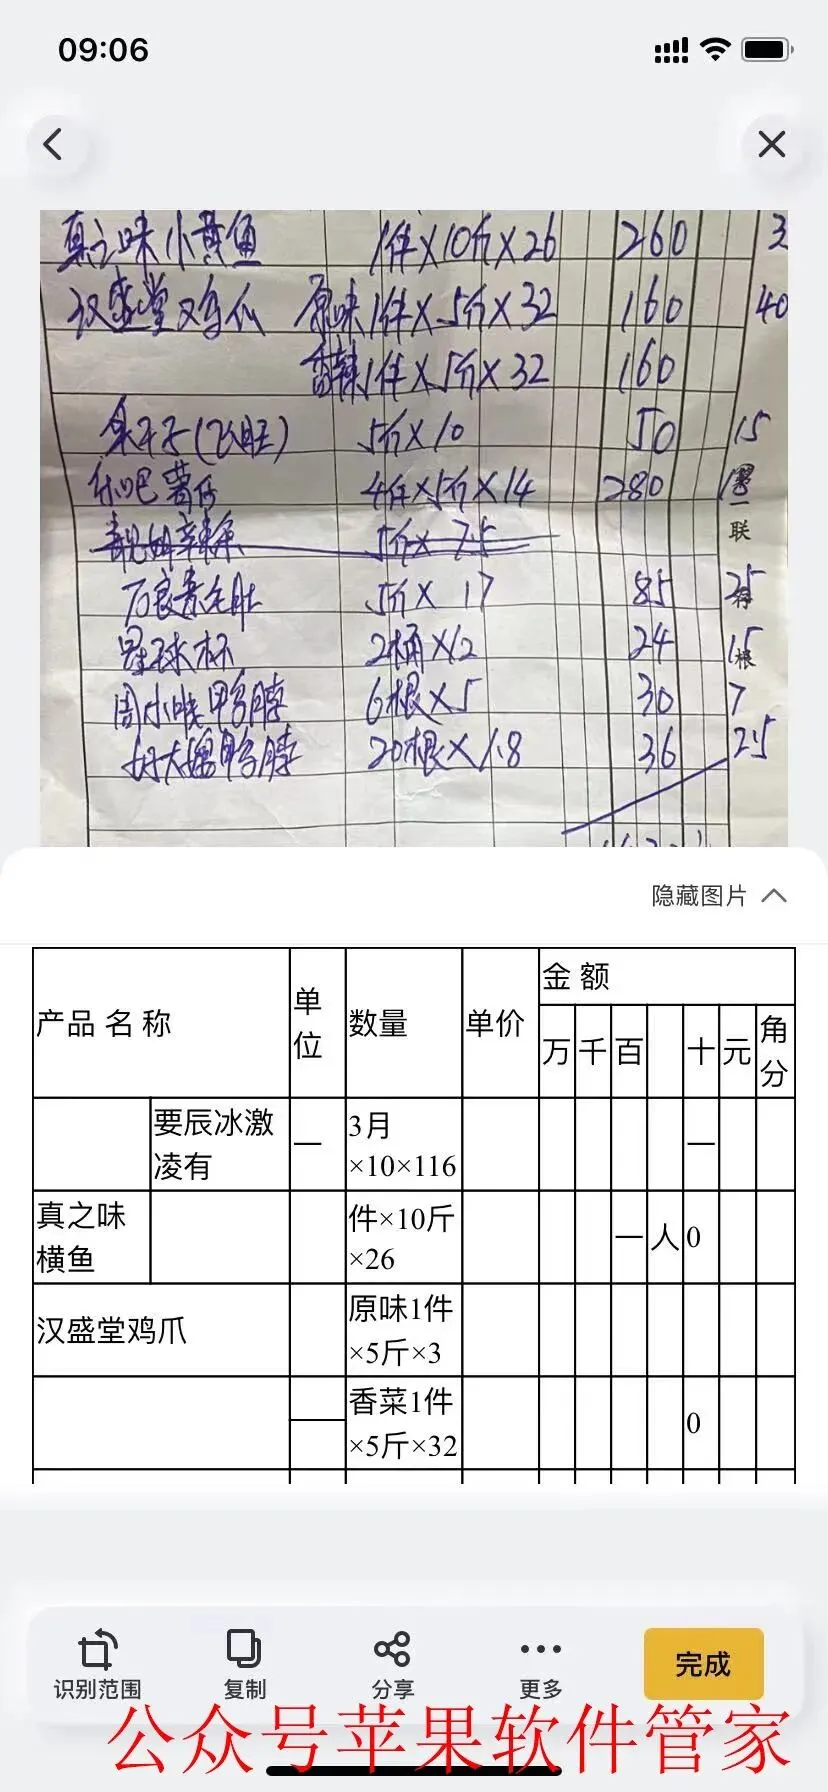 09:06
真之味小黄鱼 1件×10斤×26 260 3
汉盛堂鸡爪 原味1件×5斤×32 160 40
香辣1件×5斤×32 160
(飞旺) 5斤×10 50 15
吧薯仔 4件×5斤×14 280
一联
5斤×7.5
毛肚 5斤×17 85 25 存
星球杯 2桶×12 24 15 根
周小 鸭脖 6根×5 30 7
大 鸭脖 20根×1.8 36 25
隐藏图片
产品名称 单位 数量 单价 金额
万 千 百 十 元 角分
要辰冰激凌有 一 3月×10×116 一
真之味横鱼 件×10斤×26 一 人 0
汉盛堂鸡爪 原味1件×5斤×3
香菜1件×5斤×32 0
识别范围 复制 分享 更多 完成
公众号苹果软件管家